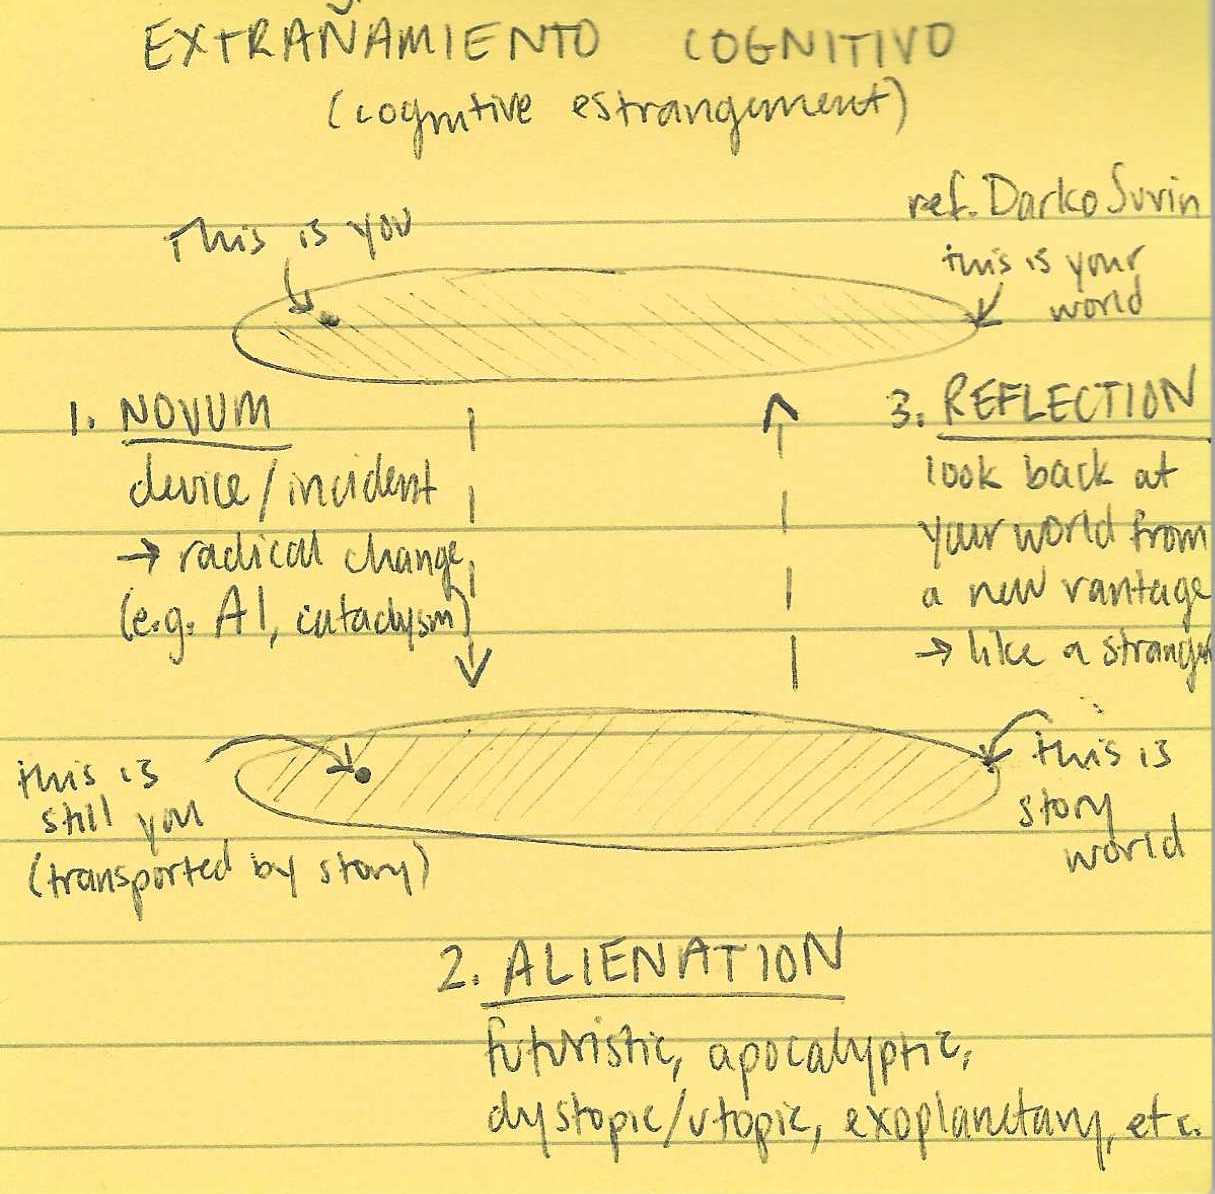 EXTRAÑAMIENTO COGNITIVO
(cognitive estrangement)
ref. Darko Suvin
This is you
this is your
world
1. NOVUM
device/incident
→ radical change
(e.g. AI, cataclysm)
3. REFLECTION
look back at
your world from
a new vantage
→ like a stranger
this is
still you
(transported by story)
this is
story
world
2. ALIENATION
futuristic, apocalyptic,
dystopic/utopic, exoplanetary, etc.